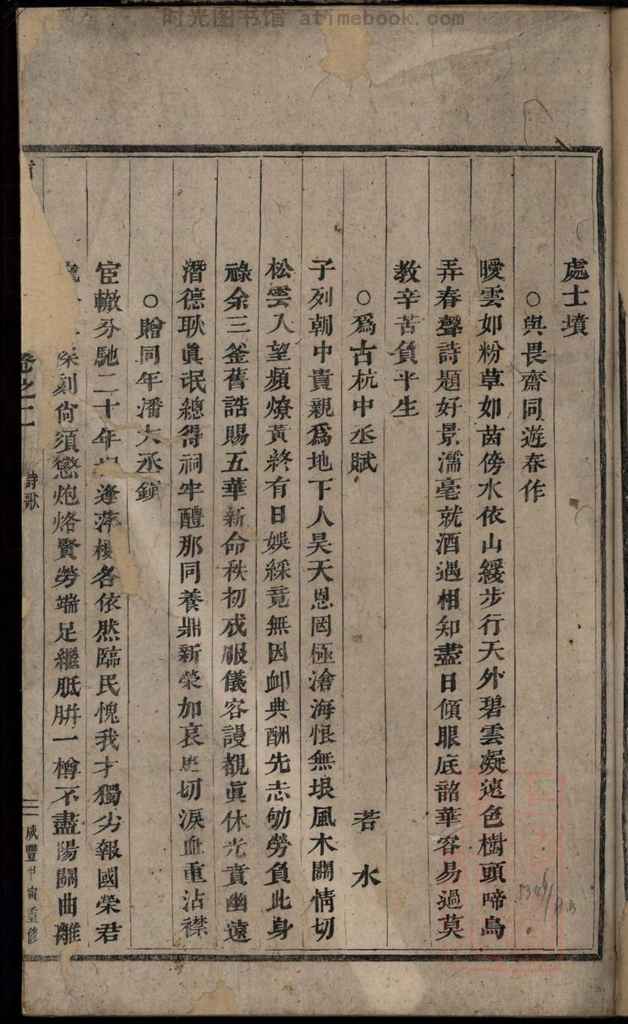 时光图书馆 atimebook.com
處士墳
○與畏齋同遊春作
曖雲如粉草如茵傍水依山緩步行天外碧雲凝遠色樹頭啼鳥
弄春聲詩題好景濡毫就酒遇相知盡日傾眼底韶華容易過莫
教辛苦負平生
○爲古杭中丞賦 若水
子列朝中貴親爲地下人昊天恩罔極滄海恨無垠風木關情切
松雲入望頻燎黃終有日娛綵竟無因卹典酬先志劬勞負此身
祿余三釜舊誥賜五華新命秩初成服儀容謾覩眞休光賁幽遠
潛德耿眞珉總得祠牢醴那同養鼎新榮加哀切淚血重沾襟
○贈同年潘大丞鎮
宦轍分馳二十年逢萍梗各依然臨民愧我才獨劣報國榮君
深刻尙須懲炮烙賢勞端足繼胝胼一樽不盡陽關曲離
卷之二 詩歌 三 咸豐甲寅重修